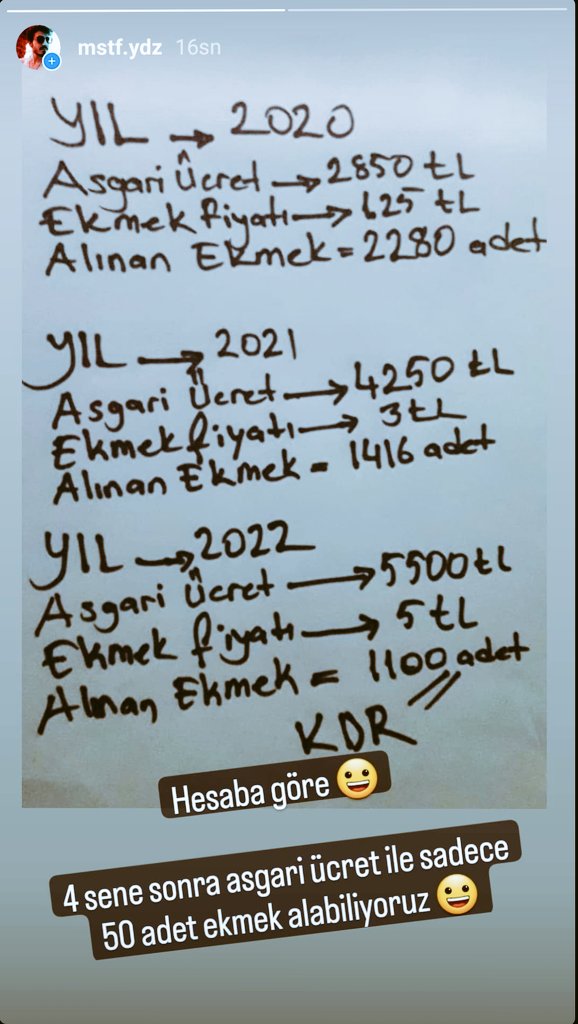 mstf.ydz 16sn
YIL → 2020
Asgari Ücret → 2850 tL
Ekmek fiyatı → 1.25 tL
Alınan Ekmek = 2280 adet
YIL → 2021
Asgari Ücret → 4250 tL
Ekmek fiyatı → 3 tL
Alınan Ekmek = 1416 adet
YIL → 2022
Asgari Ücret → 5500 tL
Ekmek fiyatı → 5 tL
Alınan Ekmek = 1100 adet
KDR
Hesaba göre 😀
4 sene sonra asgari ücret ile sadece
50 adet ekmek alabiliyoruz 😀